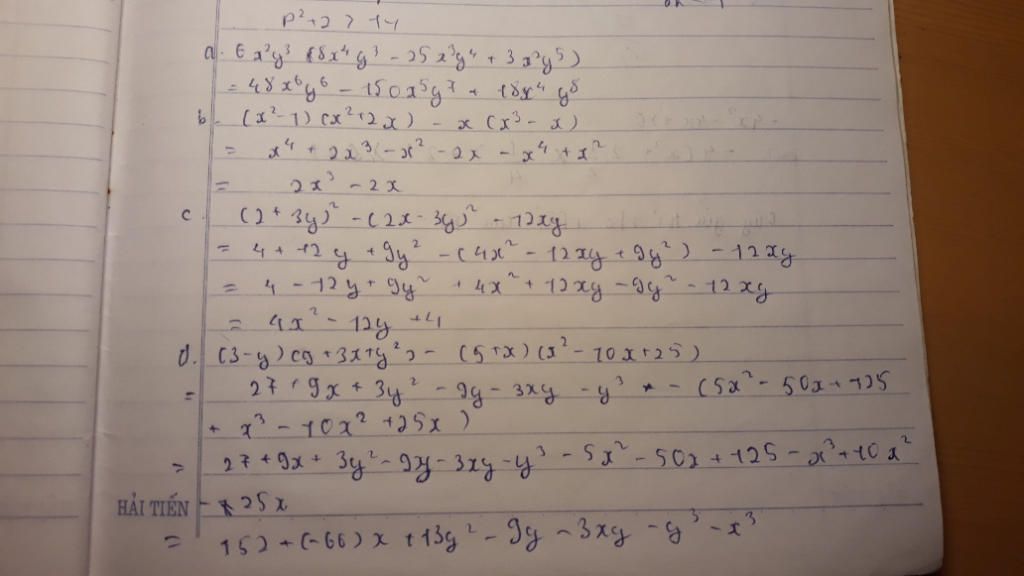 P²+2 > 14
a. 6x²y³ (8x⁴y³ - 25x³y⁴ + 3x²y⁵)
= 48x⁶y⁶ - 150x⁵y⁷ + 18x⁴y⁸
b. (x²-1)(x²+2x) - x(x³-x)
= x⁴ + 2x³ - x² - 2x - x⁴ + x²
= 2x³ - 2x
c. (2+3y)² - (2x-3y)² - 12xy
= 4 + 12y + 9y² - (4x² - 12xy + 9y²) - 12xy
= 4 - 12y + 9y² + 4x² + 12xy - 9y² - 12xy
= 4x² - 12y + 4
d. (3-y)(9+3x+y²) - (5+x)(x²-10x+25)
= 27 + 9x + 3y² - 9y - 3xy - y³ - (5x² - 50x + 125
+ x³ - 10x² + 25x)
= 27 + 9x + 3y² - 9y - 3xy - y³ - 5x² - 50x + 125 - x³ + 10x²
HẢI TIẾN - 25x
= 152 + (-66)x + 13y² - 9y - 3xy - y³ - x³